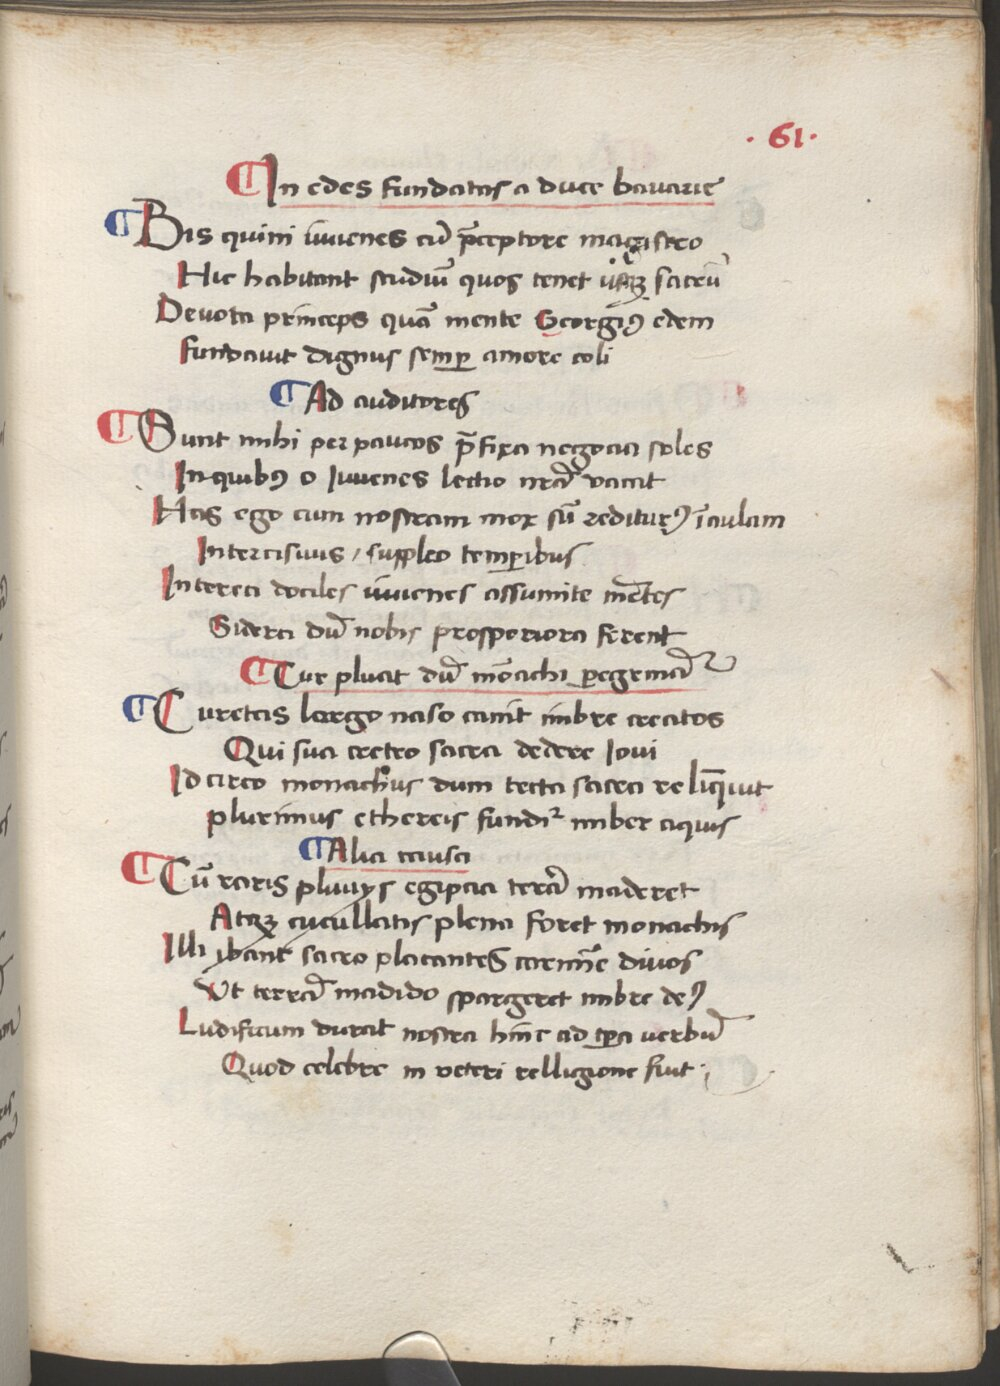 · 61 ·
¶ In edes fundatas a duce bavarie
¶ Bis quini iuuenes cū p̄ceptore magistro
Hic habitant studiū quos tenet usqꝫ sacrū
Deuota princeps quā mente Georgiꝰ edem
fundauit dignus semꝑ amore coli
¶ Ad auditores
¶ Sunt mihi per paucos p̄fixa negocia soles
In quibꝰ o Iuuenes lectio nr̄a vacat
Has ego cum nostram mox sū rediturꝰ ī aulam
Intercisiuus / suppleo temꝑibus
Interea dociles iuuenes assumite mētes
Sidera dū nobis prosperiora ferent
¶ Cur pluat dū mōachi ꝑegrināt᷑
¶ Curetas largo naso canit imbre creatos
Qui sua creteo sacra dedere Ioui
Idcirco monachus dum tecta sacra reliq̄uit
plurimus ethereis fundit᷑ imber aquis
¶ Alia causa
¶ Cū raris pluuijs egiptia terrā maderet
Atqꝫ cucullatis plena foret monachis
Illi ybant sacro placantes carmīe diuos
Ut terrā madido spargeret imbre deꝰ
Ludificum durat nostra hinc ad tꝑa uerbū
Quod celebre in veteri relligione fuit